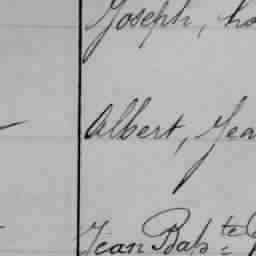 Joseph,
Albert, Jea
Jean Bapte